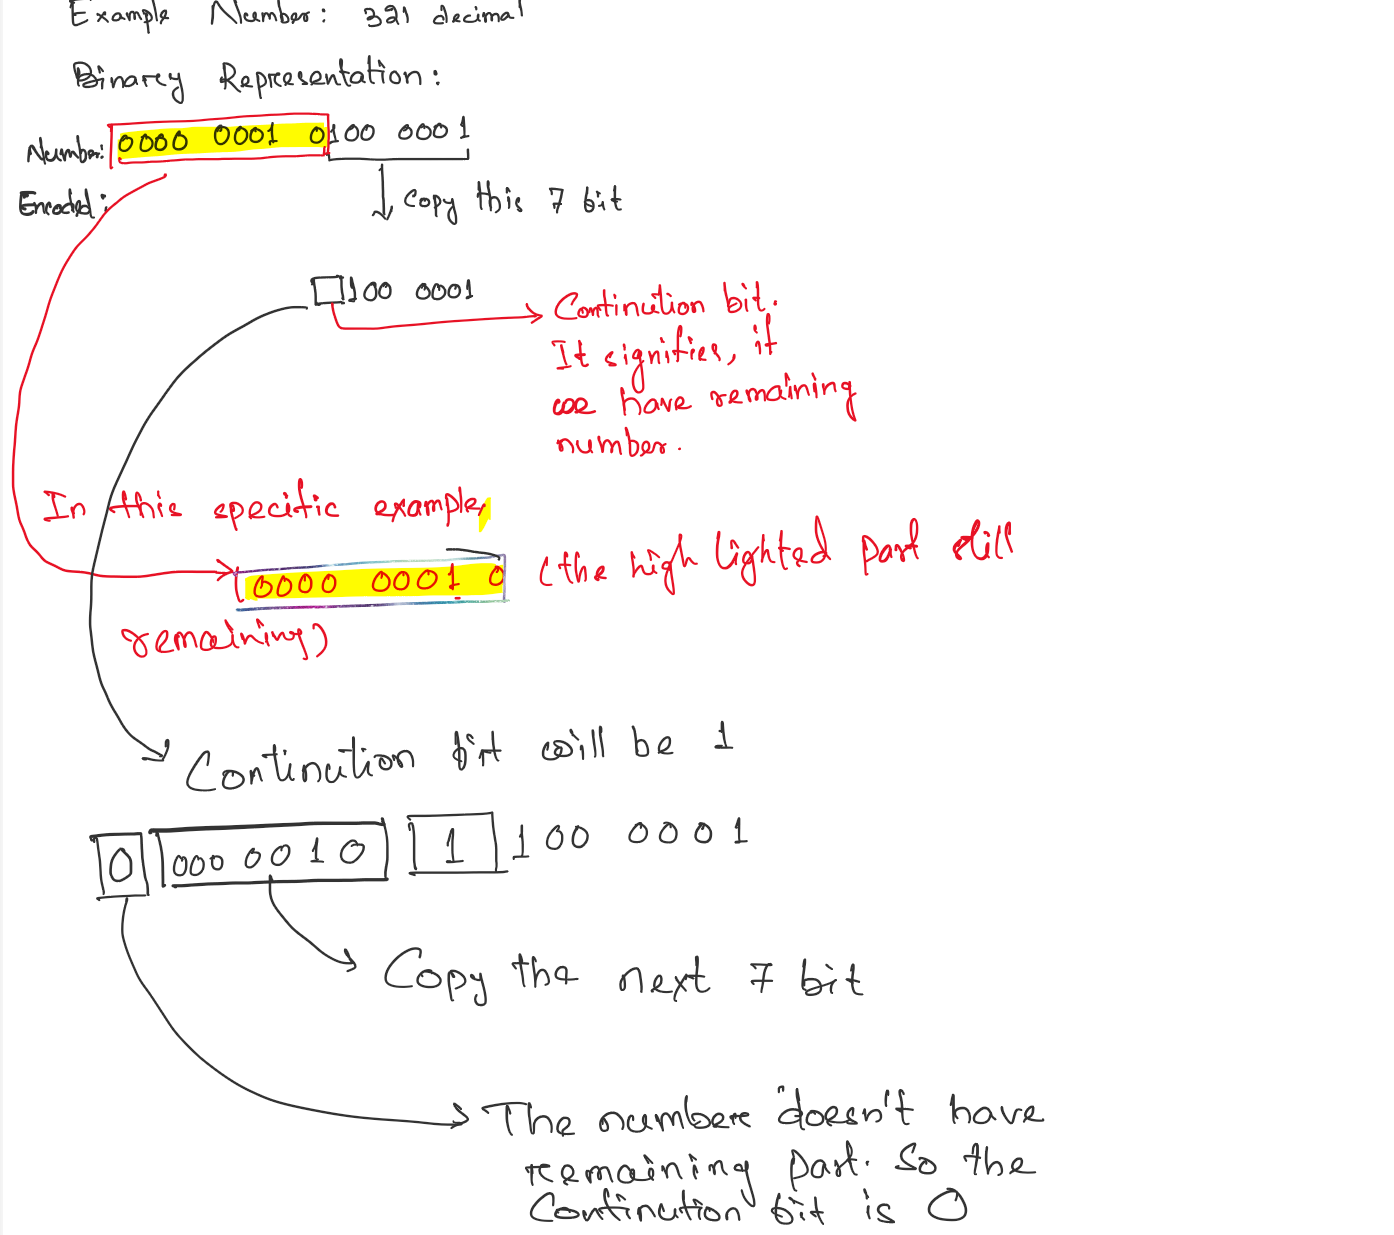 Example Number: 321 decimal
Binary Representation:
Number: 0000 0001 0100 0001
Encoded:
Copy this 7 bit
100 0001
Contination bit.
It signifies, if
we have remaining
number.
In this specific example,
0000 0001 0 (the high lighted part still
remaining)
Contination bit will be 1
0 000 0010 1 100 0001
Copy the next 7 bit
The number doesn't have
remaining part. So the
Contination bit is 0